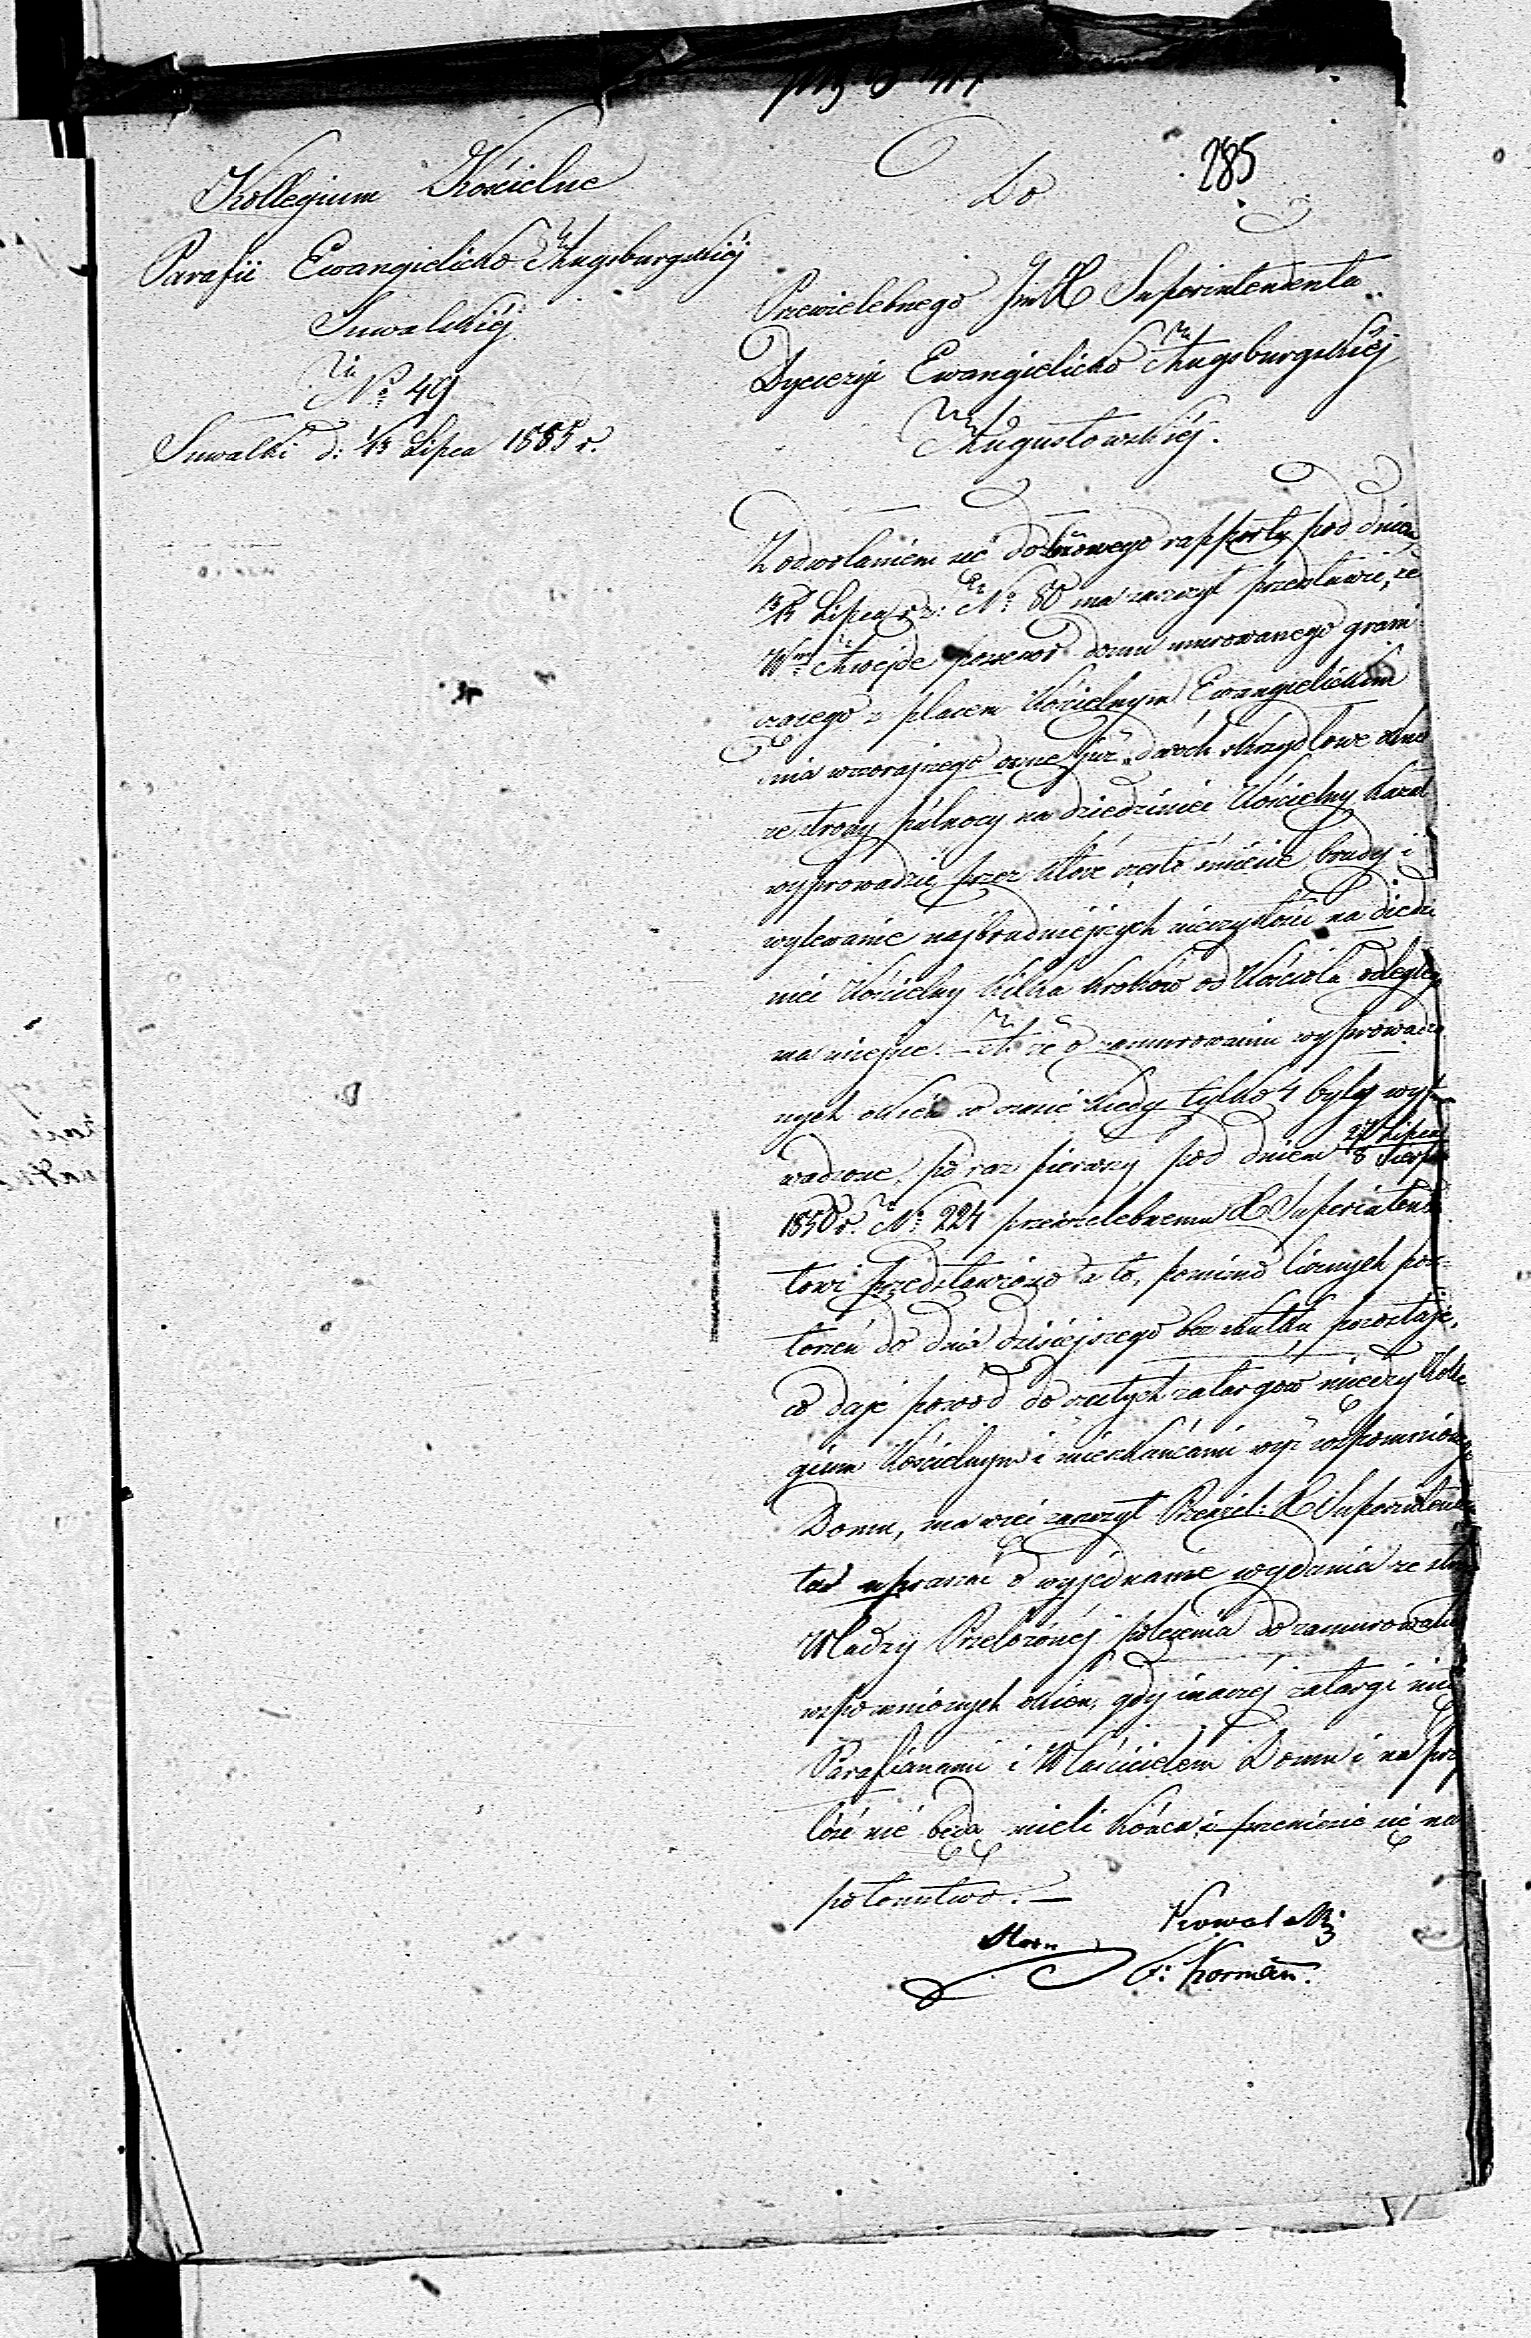 285
Kollegium Kościelne
Parafii Ewangielicko Augsburgskiéj
Suwalskiéj
№ 49
Suwałki d: 1/13 Lipca 1855 r.
Do
Przewielebnego JmX Superintendenta
Dyecezyi Ewangielicko Augsburgskiéj
Augustowskiéj.
Z odwołaniem się do rapportu pod dniem
Lipca r. z: № 80 ma zaszczyt przedstawić, że
Wny posesor domu murowanego grani
czącego z placem Kościelnym Ewangielickim
dnia wczorajszego już dwóch skrzydłowe okno
ze strony północy na dziedziniec Kościelny kazał
wyprowadzić, przez które częste śmiecie, brudy i
wylewanie najbrudniejszych nieczystości na dziedzi
niec Kościelny kilka kroków od Kościoła odległy
ma miejsce. – A że o zamurowaniu wyprowadzo
nych okien w czasie kiedy tylko 4 były wypro
wadzone, po raz pierwszy pod dniem 27 Lipca / 8 Sierp
1850 r. № 224 przewielebnemu X Superintenden
towi przedstawiono a to, pomimo licznych pow
torzeń do dnia dzisiejszego bez skutku pozostaje,
co daje powód do częstych zatargów między Kolle
gium Kościelnym i mieszkańcami wyż wspomnionego
Domu, ma więc zaszczyt Przewiel: X Superintenden
ta upraszać o wyjednanie wydania ze strony
Władzy Przełożonéj polecenia do zamurowania
wspomnionych okien, gdyż inaczéj zatargi między
Parafianami i Właścicielem Domu i na przy
łość nie będą mieli końca i przenieśie się na
potomstwo. –
Kowalski
F: Korman.